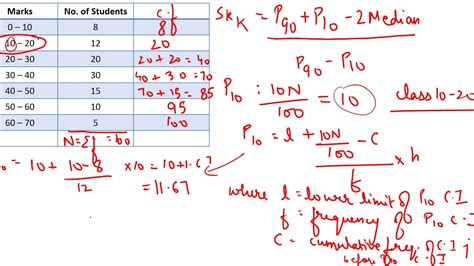 Marks No. of Students c.f
0 – 10 8 8
10 – 20 12 20
20 – 30 20 20 + 20 = 40
30 – 40 30 40 + 30 = 70
40 – 50 15 70 + 15 = 85
50 – 60 10 95
60 – 70 5 100
N = Σf = 100
= 10 + 10-8 / 12 × 10 = 10 + 1.67
= 11.67
SkK = P90 + P10 - 2 Median
P90 - P10
P10 : 10N / 100 = 10 class 10-20
P10 = l + 10N/100 - C / f × h
where l = lower limit of P10 C.I
f = frequency of P10 C.I
C = cumulative freq. of C.I
before P10 C.I